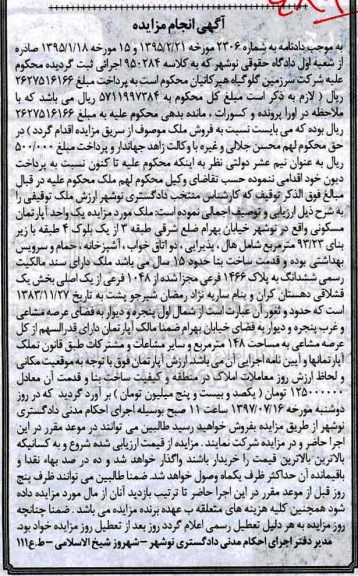 آگهی انجام مزایده
به موجب دادنامه به شماره ۲۳۰۶ مورخه ۱۳۹۵/۲/۲۱ و ۱۵ مورخه ۱۳۹۵/۱/۱۸ صادره
از شعبه اول دادگاه حقوقی نوشهر که به کلاسه ۹۵۰۲۸۴ اجرائی ثبت گردیده محکوم
علیه شرکت سرزمین گلوگیاه هیرکانیان محکوم است به پرداخت مبلغ ۲۶۲۷۵۱۶۱۶۶
ریال ( لازم به ذکر است مبلغ کل محکوم به ۵۷۱۱۹۹۷۳۸۴ ریال می باشد که با
ملاحظه در اورا پرونده و کسورات ، مانده بدهی محکوم علیه به مبلغ ۲۶۲۷۵۱۶۱۶۶
ریال بوده که می بایست نسبت به فروش ملک موصوف از سریق مزایده اقدام گردد ) در
حق محکوم لهم محسن جلالی و غیره با وکالت زاهد جهاندار و پرداخت مبلغ ۵۰۰/۰۰۰
ریال به عنوان نیم عشر دولتی نظر به اینکه محکوم علیه تا کنون نسبت به پرداخت
دیون خود اقدامی ننموده حسب تقاضای وکیل محکوم لهم ملک محکوم علیه در قبال
مبالغ فوق الذکر توقیف که کارشناس منتخب دادگستری نوشهر ارزش ملک توقیفی را
به شرح ذیل ارزیابی و توصیف اجمالی نموده است: ملک مورد مزایده یک واحد آپارتمان
مسکونی واقع در نوشهر خیابان بهرام ضلع شرقی طبقه ۳ از یک بلوک ۴ طبقه با زیر
بنای ۹۳/۲۳ مترمربع شامل هال ، پذیرایی ، دو اتاق خواب ، آشپزخانه ، حمام و سرویس
بهداشتی بوده و قدمت ساخت بنا حدود ۱۵ سال می باشد ملک دارای سند مالکیت
رسمی ششدانگ به پلاک ۱۴۶۶ فرعی مجزا شده از ۱۰۴۸ فرعی از یک اصلی بخش یک
قشلاقی دهستان کران و بنام ساریه نژاد رمضان شیرجو پشت به تاریخ ۱۳۸۳/۱۱/۲۷
است که حدود و ثغور آن عبارت است از شمال اول پنجره و دیوار به فضای عرصه مشاعی
و غرب پنجره و دیوار به فضای خیابان بهرام ضمنا مالک آپارتمان دارای قدرالسهم از کل
عرصه مشاعی به مساحت ۱۴۸ مترمربع و سایر مشاعات و مشترکات طبق قانون تملک
آپارتمانها و آیین نامه اجرایی آن می باشد ارزش آپارتمان فوق با توجه به موقعیت مکانی
و لحاظ ارزش روز معاملات املاک در منطقه و کیفیت ساخت بنا و قدمت آن معادل
۱۲۵۰۰۰۰۰۰ تومان ( یکصد و بیست و پنج میلیون تومان ) بر آورد گردید که در روز
دوشنبه مورخه ۱۳۹۷/۰۷/۱۶ ساعت ۱۱ صبح بوسیله اجرای احکام مدنی دادگستری
نوشهر از طریق مزایده بفروش خواهید رسید طالبین می توانند در موعد مقرر در این
اجرا حاضر و در مزایده شرکت نمایند . مزایده از قیمت ارزیابی شده شروع و به کسانیکه
بالاترین بالاترین قیمت را خریدار باشند واگذار خواهد شد و ده در صد بهاء نقدا و
باقیمانده آن حداکثر ظرف یکماه وصول خواهد شد. ضمنا طالبین می توانند ظرف پنج
روز قبل از موعد مقرر در این اجرا حاضر تا ترتیب بازدید آنان از مال مورد مزایده داده
شود همچنین کلیه هزینه های متعلقه ب عهده برنده مزایده می باشد . ضمنا چنانچه
روز مزایده به هر دلیل تعطیل رسمی اعلام گردد روز بعد از تعطیل روز مزایده خواد بود.
مدیر دفتر اجرای احکام مدنی دادگستری نوشهر - شهروز شیخ الاسلامی - ط.ع۱۱۱